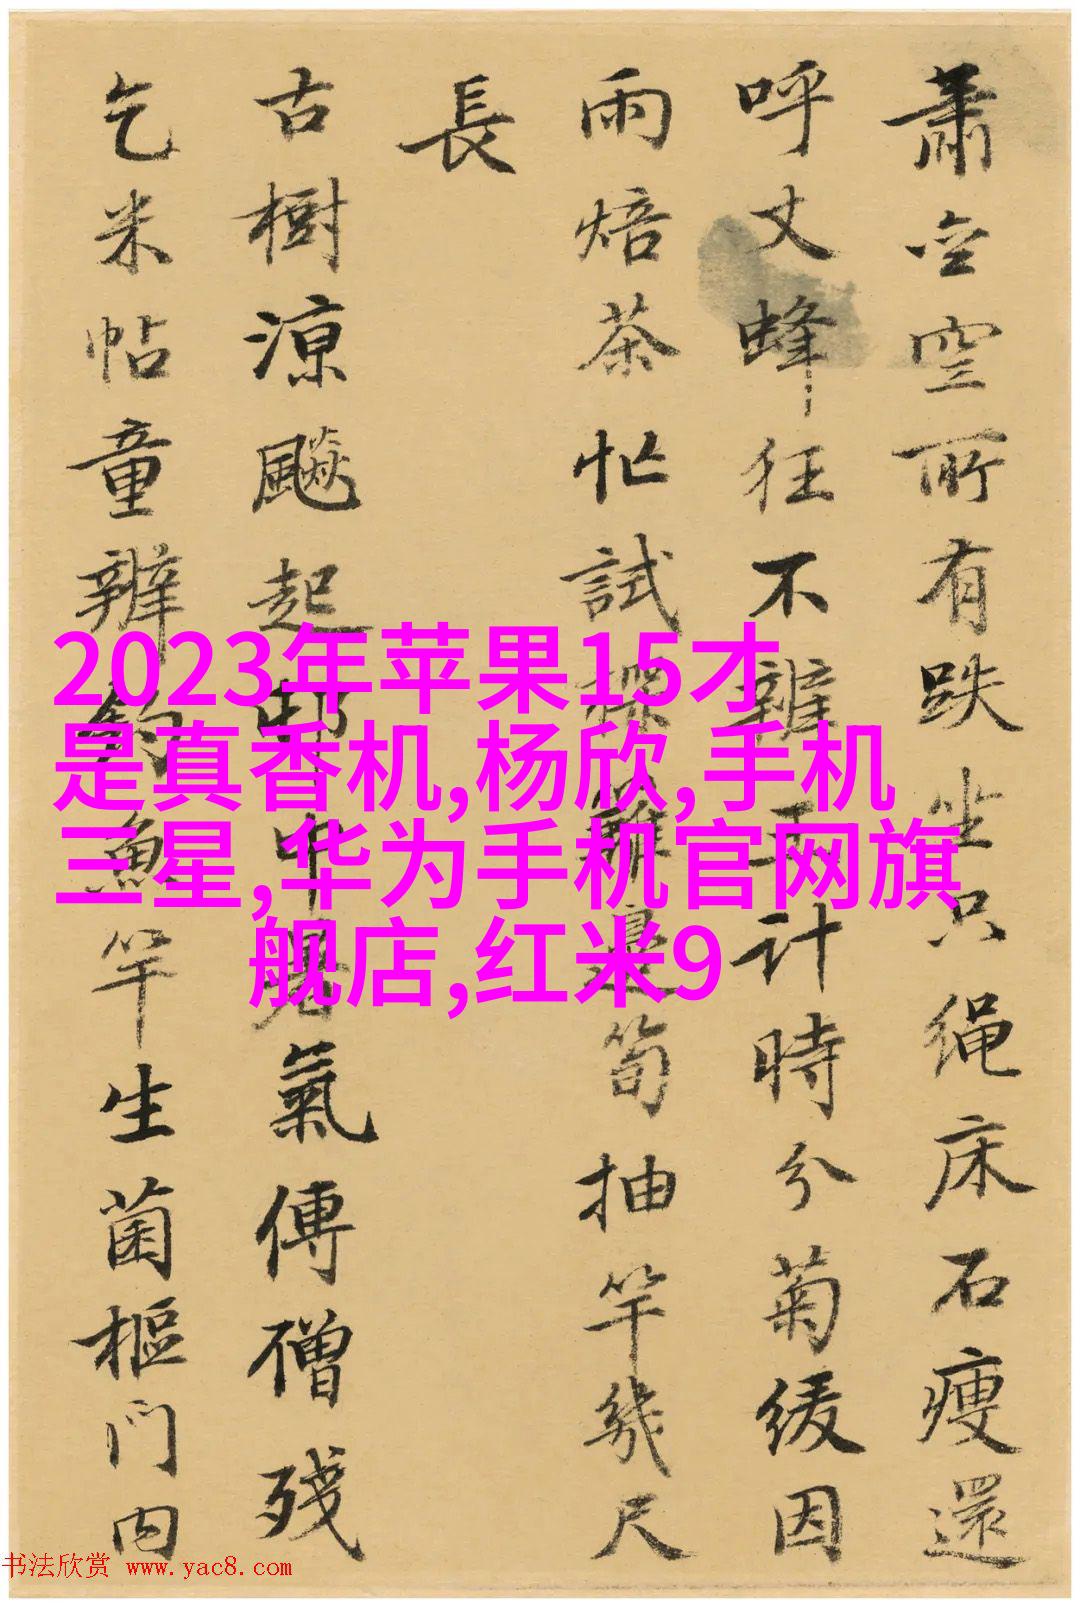 蕭寺空所有跌坐只绳床石瘦還
呼丈蜂狂不雜王計時分菊緩因
雨焙茶忙試探籬邊筍抽竿幾尺
長
古樹涼飈起邨中見氣傅僧殘
乞米帖童辨釣魚竿生菌樞門内
2023年苹果15才
是真香机,杨欣,手机
三星,华为手机官网旗
舰店,红米9
书法欣赏 www.yac8.com